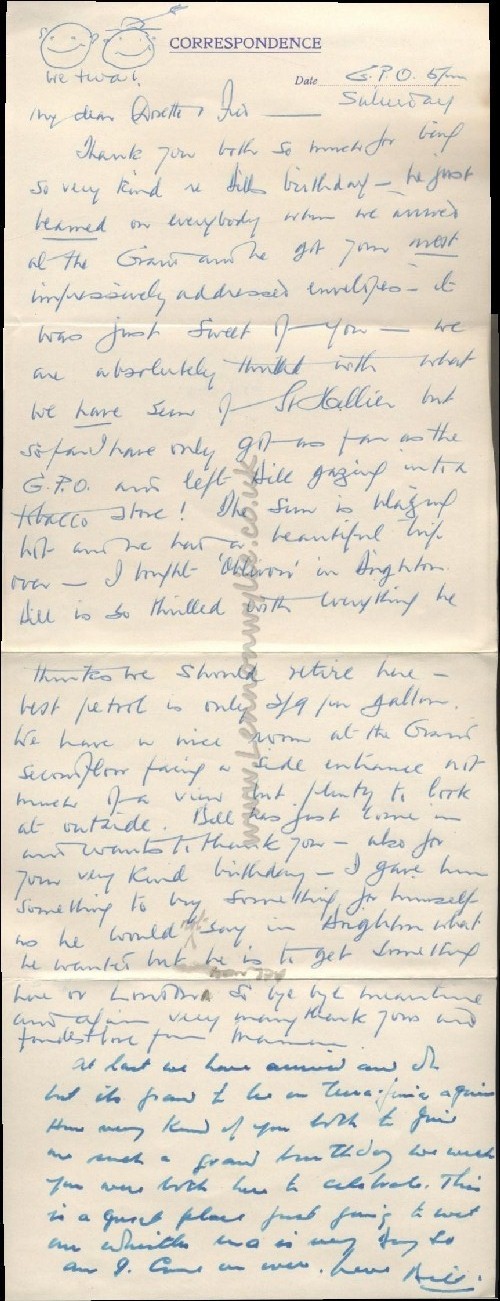 CORRESPONDENCE
we twa!
Date G.P.O. 5pm
Saturday
My dear &
Thank you both so much for being
so very kind re Bills birthday – he just
beamed on everybody when we arrived
at the Grand and he got your most
impressively addressed envelopes – it
was just sweet of you – we
are absolutely thrilled with what
we have seen of St Hellier but
so far I have only got as far as the
G.P.O. and left Bill gazing into a
tobacco store! The sun is blazing
hot and we had a beautiful trip
over – I bought in Brighton.
Bill is so thrilled with everything he
thinks we should retire here –
best petrol is only 2/9 per gallon.
We have a nice room at the Grand
second floor facing a side entrance not
much of a view but plenty to look
at outside. Bill has just come in
and wants to thank you – also for
your very kind birthday – I gave him
something to buy something for himself
as he would not say in Brighton what
he wanted but he is to get something
here or London so bye bye meantime
and again very many thank yous and
fondest love from
At last we have arrived and oh
but its grand to be on terra firma again
How very kind of you both to give
me such a grand birthday we wish
you were both here to celebrate. This
is a great place just going to wet
our whistles and is very dry so
am I. Come on over. Love Bill.
www.Lennonwylie.co.uk